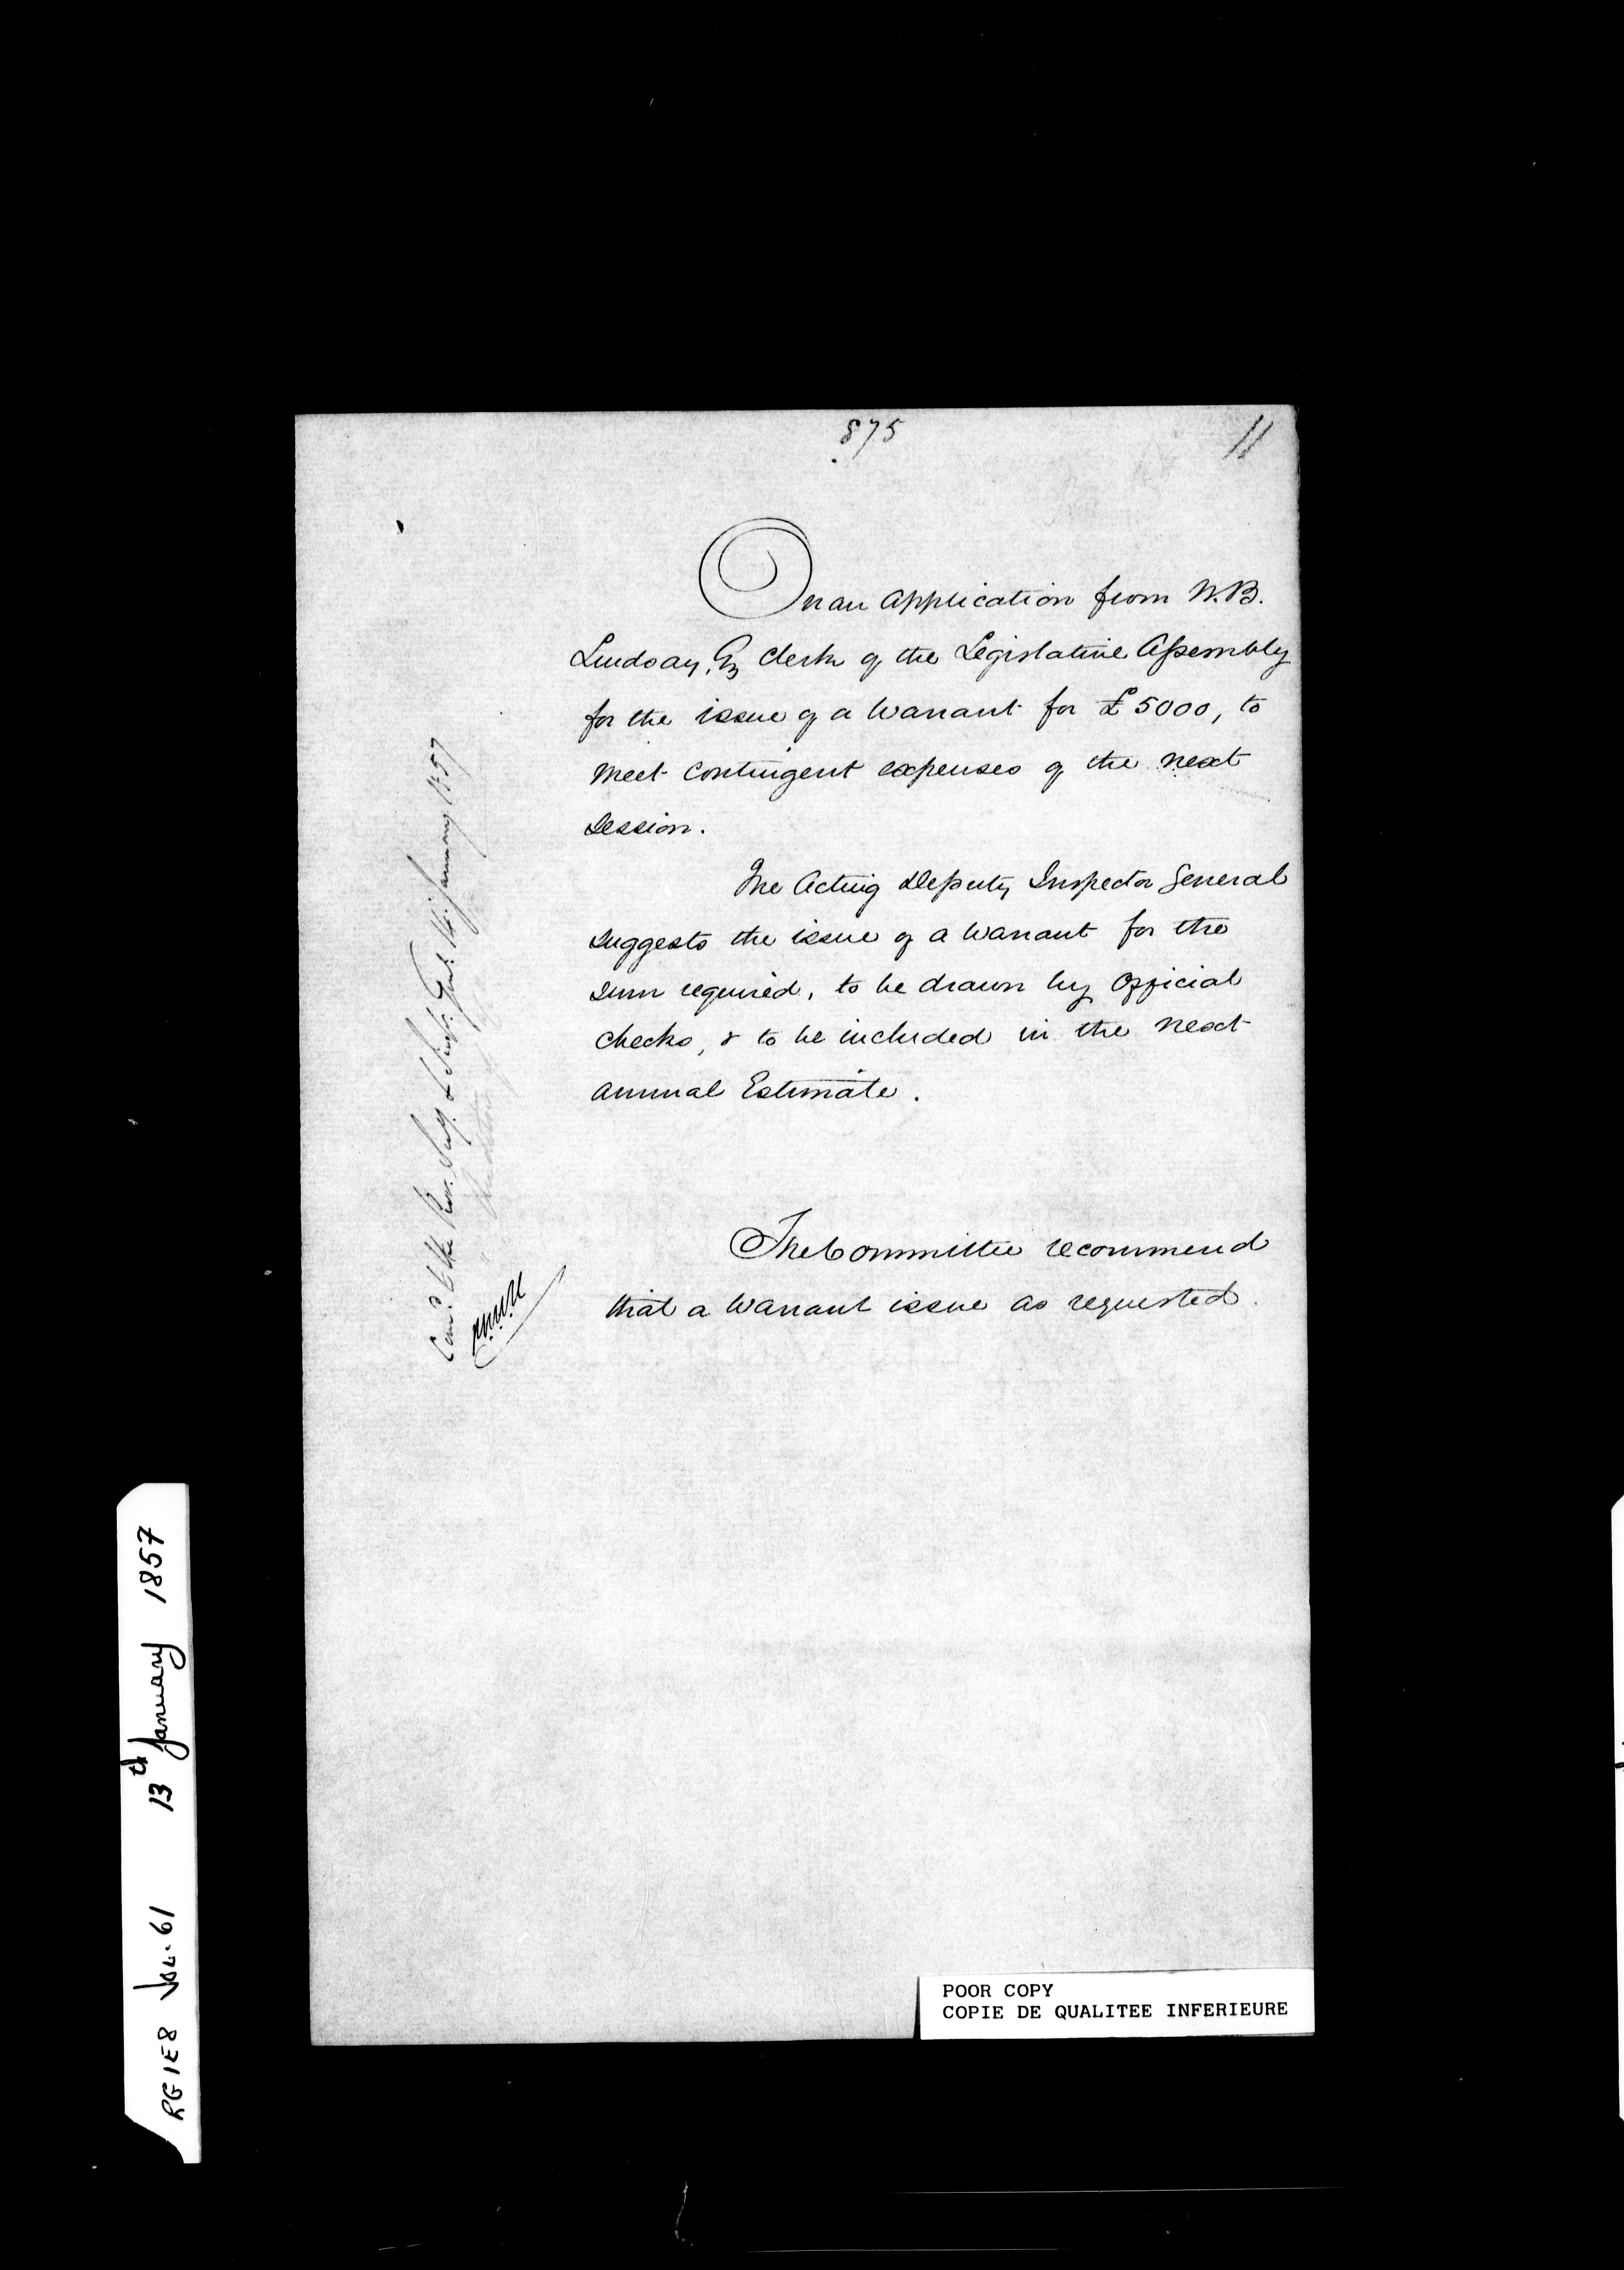 875
11
On an Application from W.B.
Lindsay, Esq Clerk of the Legislative Assembly
for the issue of a Warrant for £5000, to
meet contingent expenses of the next
Session.
The Acting Deputy Inspector General
suggests the issue of a Warrant for the
sum required, to be drawn by Official
checks, & to be included in the next
annual Estimate.
The Committee recommend
that a Warrant issue as requested.
Comd to the Rec. & Insp. Genl. 14. January 1857
" Auditor
RG1E8 Vol. 61 13th January 1857
POOR COPY
COPIE DE QUALITEE INFERIEURE